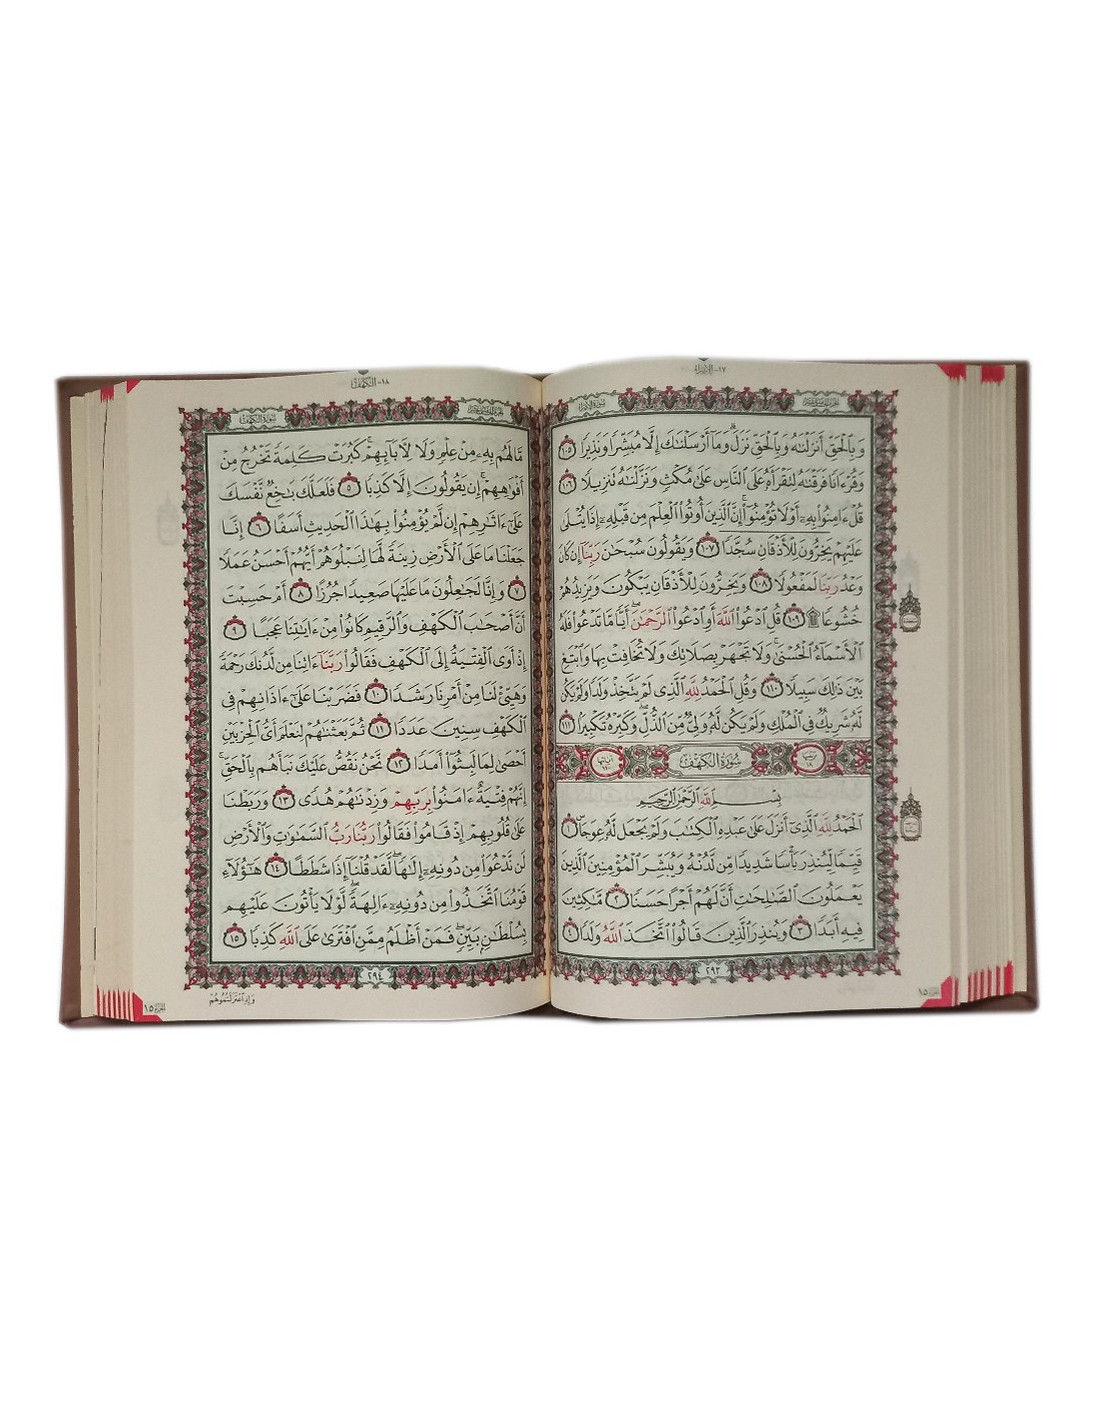 ١٧- الإسراء
سورة الإسراء
وَبِٱلْحَقِّ أَنزَلْنَٰهُ وَبِٱلْحَقِّ نَزَلَ ۗ وَمَآ أَرْسَلْنَٰكَ إِلَّا مُبَشِّرًا وَنَذِيرًا ١٠٥
وَقُرْءَانًا فَرَقْنَٰهُ لِتَقْرَأَهُۥ عَلَى ٱلنَّاسِ عَلَىٰ مُكْثٍ وَنَزَّلْنَٰهُ تَنزِيلًا ١٠٦
قُلْ ءَامِنُوا۟ بِهِۦٓ أَوْ لَا تُؤْمِنُوٓا۟ ۚ إِنَّ ٱلَّذِينَ أُوتُوا۟ ٱلْعِلْمَ مِن قَبْلِهِۦٓ إِذَا يُتْلَىٰ
عَلَيْهِمْ يَخِرُّونَ لِلْأَذْقَانِ سُجَّدًا ١٠٧ وَيَقُولُونَ سُبْحَٰنَ رَبِّنَآ إِن كَانَ
وَعْدُ رَبِّنَا لَمَفْعُولًا ١٠٨ وَيَخِرُّونَ لِلْأَذْقَانِ يَبْكُونَ وَيَزِيدُهُمْ
خُشُوعًا ۩ ١٠٩ قُلِ ٱدْعُوا۟ ٱللَّهَ أَوِ ٱدْعُوا۟ ٱلرَّحْمَٰنَ ۖ أَيًّا مَّا تَدْعُوا۟ فَلَهُ
ٱلْأَسْمَآءُ ٱلْحُسْنَىٰ ۚ وَلَا تَجْهَرْ بِصَلَاتِكَ وَلَا تُخَافِتْ بِهَا وَٱبْتَغِ
بَيْنَ ذَٰلِكَ سَبِيلًا ١١٠ وَقُلِ ٱلْحَمْدُ لِلَّهِ ٱلَّذِى لَمْ يَتَّخِذْ وَلَدًا وَلَمْ يَكُن
لَّهُۥ شَرِيكٌ فِى ٱلْمُلْكِ وَلَمْ يَكُن لَّهُۥ وَلِىٌّ مِّنَ ٱلذُّلِّ ۖ وَكَبِّرْهُ تَكْبِيرًۢا ١١١
سُورَةُ الكَهْفِ
بِسْمِ ٱللَّهِ ٱلرَّحْمَٰنِ ٱلرَّحِيمِ
ٱلْحَمْدُ لِلَّهِ ٱلَّذِىٓ أَنزَلَ عَلَىٰ عَبْدِهِ ٱلْكِتَٰبَ وَلَمْ يَجْعَل لَّهُۥ عِوَجَا ۜ ١
قَيِّمًا لِّيُنذِرَ بَأْسًا شَدِيدًا مِّن لَّدُنْهُ وَيُبَشِّرَ ٱلْمُؤْمِنِينَ ٱلَّذِينَ
يَعْمَلُونَ ٱلصَّٰلِحَٰتِ أَنَّ لَهُمْ أَجْرًا حَسَنًا ٢ مَّٰكِثِينَ
فِيهِ أَبَدًا ٣ وَيُنذِرَ ٱلَّذِينَ قَالُوا۟ ٱتَّخَذَ ٱللَّهُ وَلَدًا ٤
٢٩٣
الجزء ١٥
١٨- الكهف
سورة الكهف
مَّا لَهُم بِهِۦ مِنْ عِلْمٍ وَلَا لِءَابَآئِهِمْ ۚ كَبُرَتْ كَلِمَةً تَخْرُجُ مِنْ
أَفْوَٰهِهِمْ ۚ إِن يَقُولُونَ إِلَّا كَذِبًا ٥ فَلَعَلَّكَ بَٰخِعٌ نَّفْسَكَ
عَلَىٰٓ ءَاثَٰرِهِمْ إِن لَّمْ يُؤْمِنُوا۟ بِهَٰذَا ٱلْحَدِيثِ أَسَفًا ٦ إِنَّا
جَعَلْنَا مَا عَلَى ٱلْأَرْضِ زِينَةً لَّهَا لِنَبْلُوَهُمْ أَيُّهُمْ أَحْسَنُ عَمَلًا
٧ وَإِنَّا لَجَٰعِلُونَ مَا عَلَيْهَا صَعِيدًا جُرُزًا ٨ أَمْ حَسِبْتَ
أَنَّ أَصْحَٰبَ ٱلْكَهْفِ وَٱلرَّقِيمِ كَانُوا۟ مِنْ ءَايَٰتِنَا عَجَبًا ٩
إِذْ أَوَى ٱلْفِتْيَةُ إِلَى ٱلْكَهْفِ فَقَالُوا۟ رَبَّنَآ ءَاتِنَا مِن لَّدُنكَ رَحْمَةً
وَهَيِّئْ لَنَا مِنْ أَمْرِنَا رَشَدًا ١٠ فَضَرَبْنَا عَلَىٰٓ ءَاذَانِهِمْ فِى
ٱلْكَهْفِ سِنِينَ عَدَدًا ١١ ثُمَّ بَعَثْنَٰهُمْ لِنَعْلَمَ أَىُّ ٱلْحِزْبَيْنِ
أَحْصَىٰ لِمَا لَبِثُوٓا۟ أَمَدًا ١٢ نَّحْنُ نَقُصُّ عَلَيْكَ نَبَأَهُم بِٱلْحَقِّ ۚ
إِنَّهُمْ فِتْيَةٌ ءَامَنُوا۟ بِرَبِّهِمْ وَزِدْنَٰهُمْ هُدًى ١٣ وَرَبَطْنَا
عَلَىٰ قُلُوبِهِمْ إِذْ قَامُوا۟ فَقَالُوا۟ رَبُّنَا رَبُّ ٱلسَّمَٰوَٰتِ وَٱلْأَرْضِ
لَن نَّدْعُوَا۟ مِن دُونِهِۦٓ إِلَٰهًا ۖ لَّقَدْ قُلْنَآ إِذًا شَطَطًا ١٤ هَٰٓؤُلَآءِ
قَوْمُنَا ٱتَّخَذُوا۟ مِن دُونِهِۦٓ ءَالِهَةً ۖ لَّوْلَا يَأْتُونَ عَلَيْهِم
بِسُلْطَٰنٍۭ بَيِّنٍ ۖ فَمَنْ أَظْلَمُ مِمَّنِ ٱفْتَرَىٰ عَلَى ٱللَّهِ كَذِبًا ١٥
٢٩٤
وَإِذِ ٱعْتَزَلْتُمُوهُمْ
الجزء ١٥